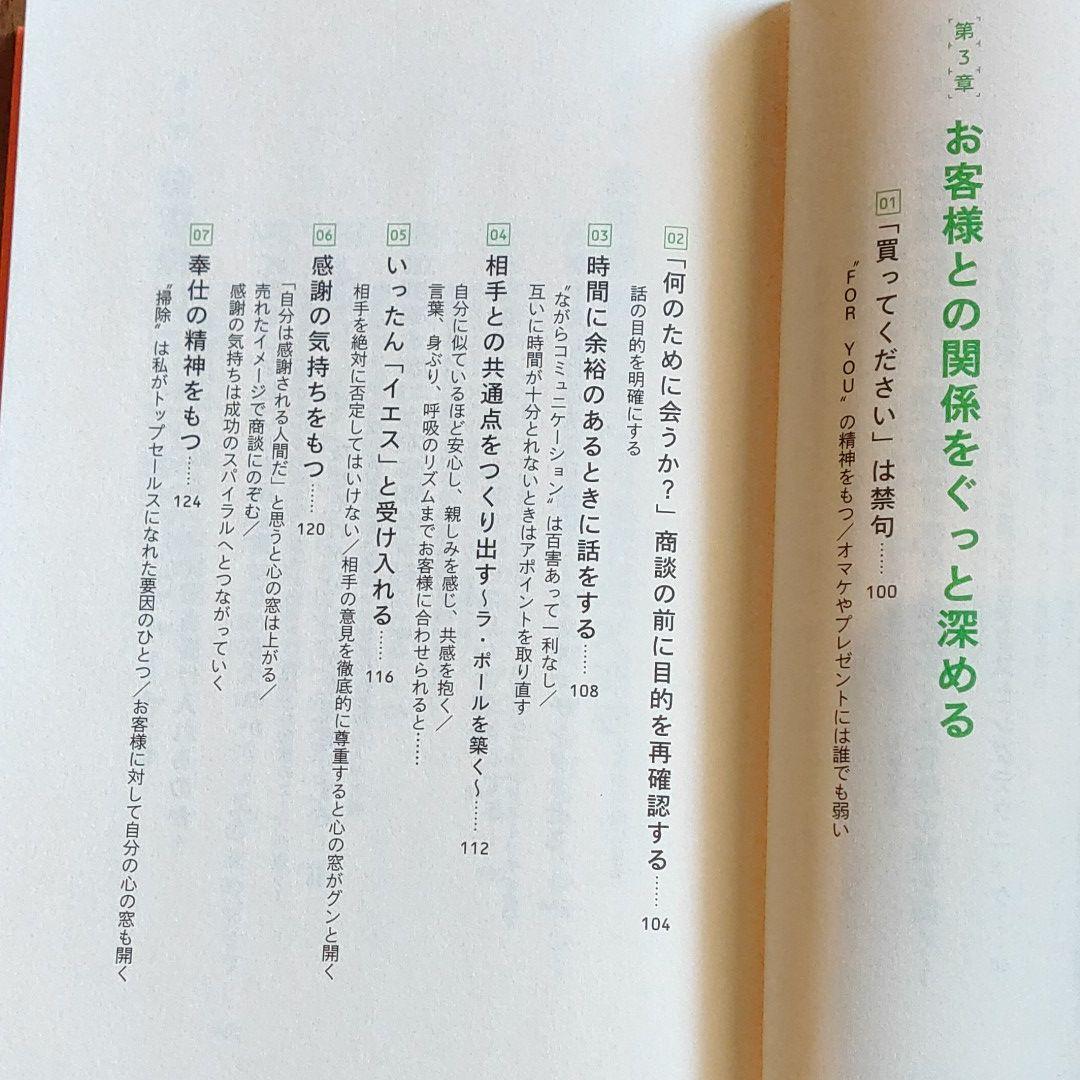 第3章
お客様との関係をぐっと深める
01
「買ってください」は禁句……100
〝FOR YOU〟の精神をもつ／オマケやプレゼントには誰でも弱い
02
「何のために会うか？」商談の前に目的を再確認する……104
話の目的を明確にする
03
時間に余裕のあるときに話をする……108
〝ながらコミュニケーション〟は百害あって一利なし／
互いに時間が十分とれないときはアポイントを取り直す
04
相手との共通点をつくり出す～ラ・ポールを築く～……112
自分に似ているほど安心し、親しみを感じ、共感を抱く／
言葉、身ぶり、呼吸のリズムまでお客様に合わせられると……
05
いったん「イエス」と受け入れる……116
相手を絶対に否定してはいけない／相手の意見を徹底的に尊重すると心の窓がグンと開く
06
感謝の気持ちをもつ……120
「自分は感謝される人間だ」と思うと心の窓は上がる／
売れたイメージで商談にのぞむ／
感謝の気持ちは成功のスパイラルへとつながっていく
07
奉仕の精神をもつ……124
〝掃除〟は私がトップセールスになれた要因のひとつ／お客様に対して自分の心の窓も開く